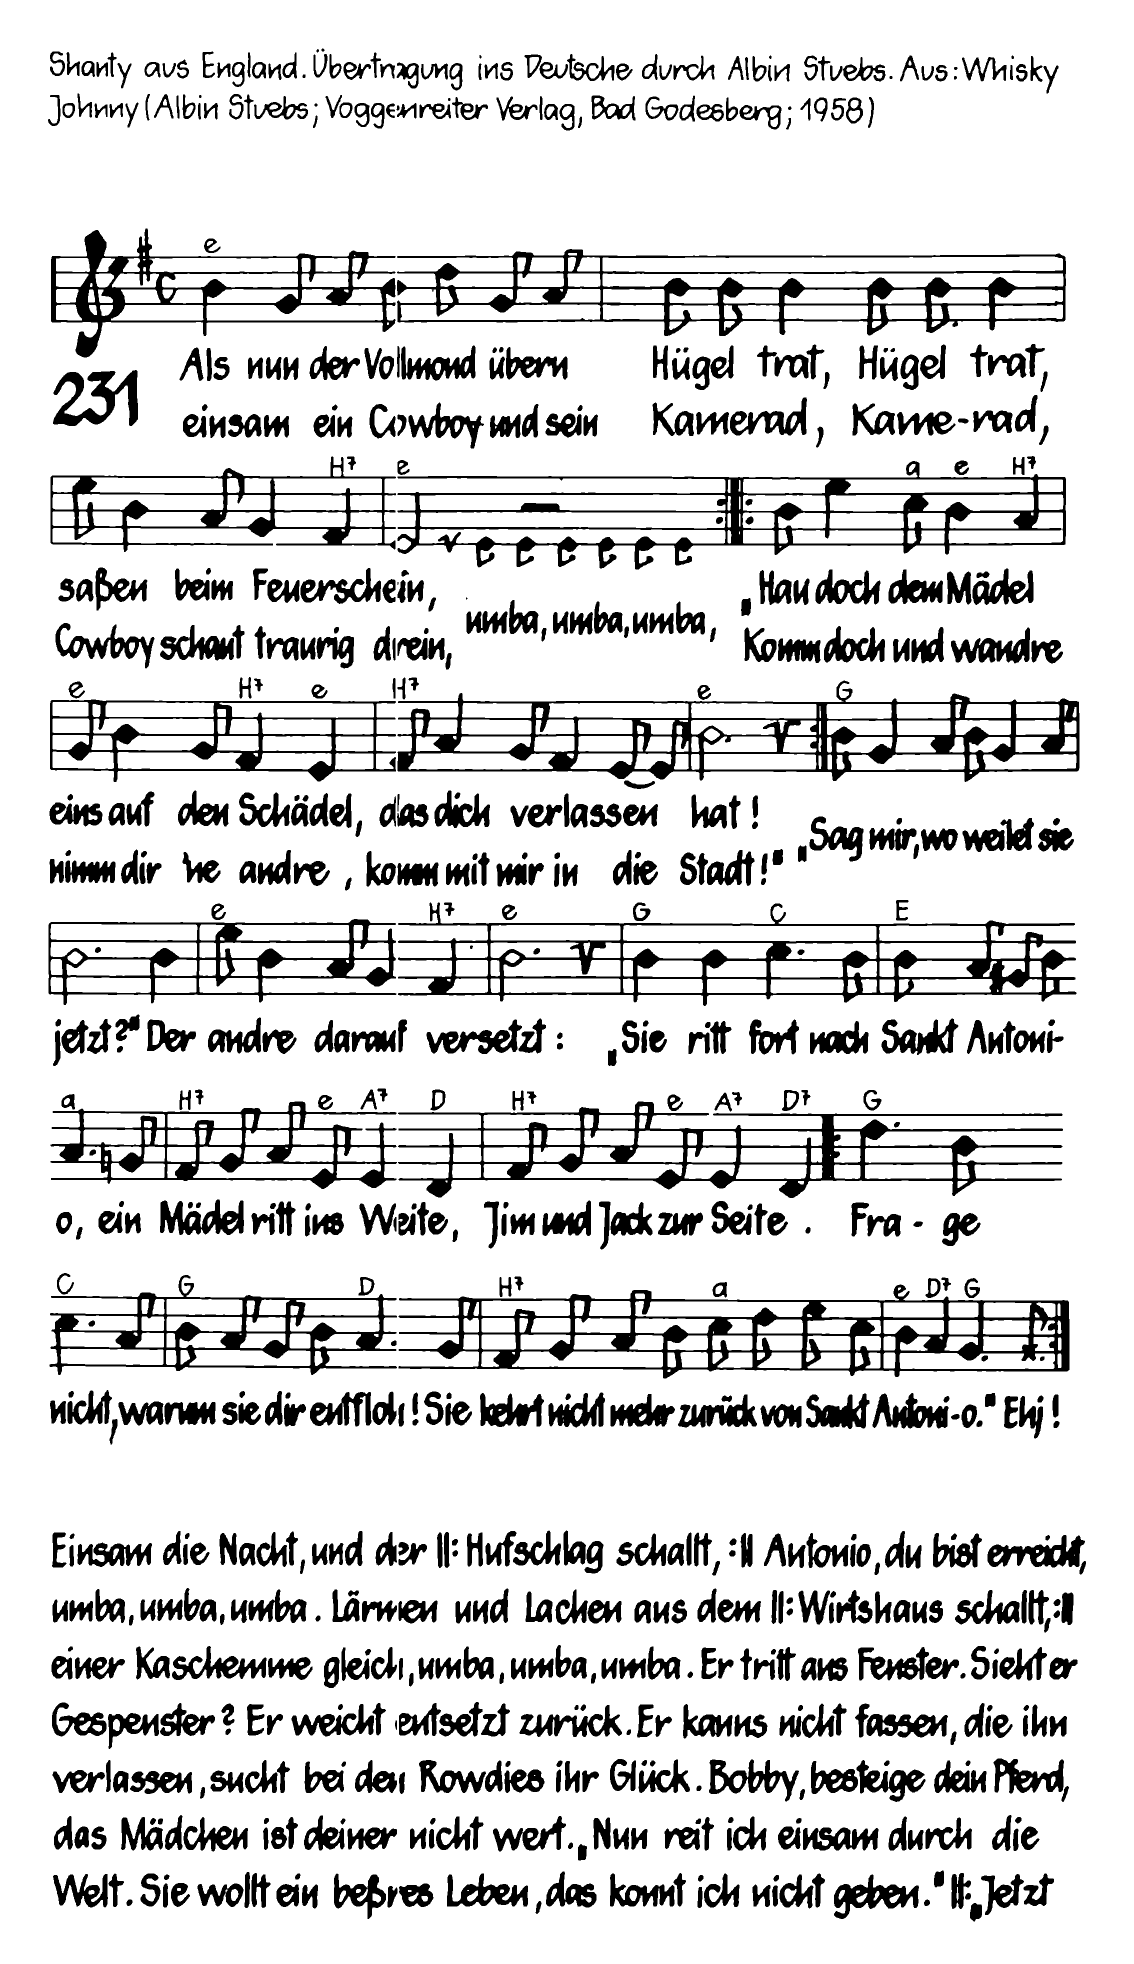 Shanty aus England. Übertragung ins Deutsche durch Albin Stuebs. Aus: Whisky
Johnny (Albin Stuebs; Voggenreiter Verlag, Bad Godesberg; 1958)
e
Als nun der Vollmond übern Hügel trat, Hügel trat,
231
einsam ein Cowboy und sein Kamerad, Kame-rad,
H7 e a e H7
saßen beim Feuerschein, umba, umba, umba, „Hau doch dem Mädel
Cowboy schaut traurig drein, Komm doch und wandre
e H7 e H7 e G
eins auf den Schädel, das dich verlassen hat! „Sag mir, wo weilet sie
nimm dir 'ne andre, komm mit mir in die Stadt!"
e H7 e G C E
jetzt?" Der andre darauf versetzt: „Sie ritt fort nach Sankt Antoni-
a H7 e A7 D H7 e A7 D7 G
o, ein Mädel ritt ins Weite, Jim und Jack zur Seite. Fra - ge
C G D H7 a e D7 G
nicht, warum sie dir entfloh! Sie kehrt nicht mehr zurück von Sankt Antoni-o." Ehj!
Einsam die Nacht, und der ||: Hufschlag schallt, :|| Antonio, du bist erreicht,
umba, umba, umba. Lärmen und Lachen aus dem ||: Wirtshaus schallt, :||
einer Kaschemme gleich, umba, umba, umba. Er tritt ans Fenster. Sieht er
Gespenster? Er weicht entsetzt zurück. Er kanns nicht fassen, die ihn
verlassen, sucht bei den Rowdies ihr Glück. Bobby, besteige dein Pferd,
das Mädchen ist deiner nicht wert. „Nun reit ich einsam durch die
Welt. Sie wollt ein beßres Leben, das konnt ich nicht geben." ||: „Jetzt